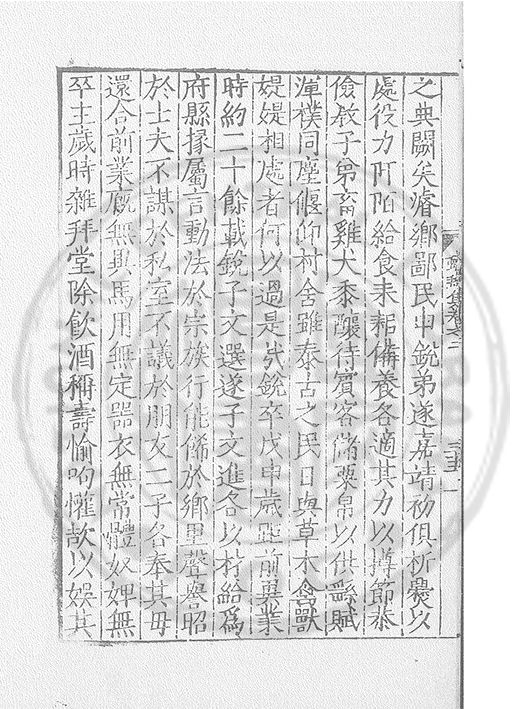 之典闕矣濬鄉鄙民申銳弟遂嘉靖初俱析爨以
處役力阡陌給食耒耜備養各適其力以撙節恭
儉敎子弟畜雞犬黍釀待賓客儲粟帛以供繇賦
渾樸同塵偃仰村舍雖泰古之民日與草木禽獸
媞媞相處者何以過是哉銳卒戊申歲距前異業
時約二十餘載銳子文選遂子文進各以材給爲
府縣掾屬言動法於宗族行能俻於鄉里聲譽昭
於士夫不謀於私室不議於朋友二子各奉其母
還合前業廐無異馬用無定噐衣無常體奴婢無
卒主歲時雜拜堂除飲酒稱壽愉呴懽歆以娛其